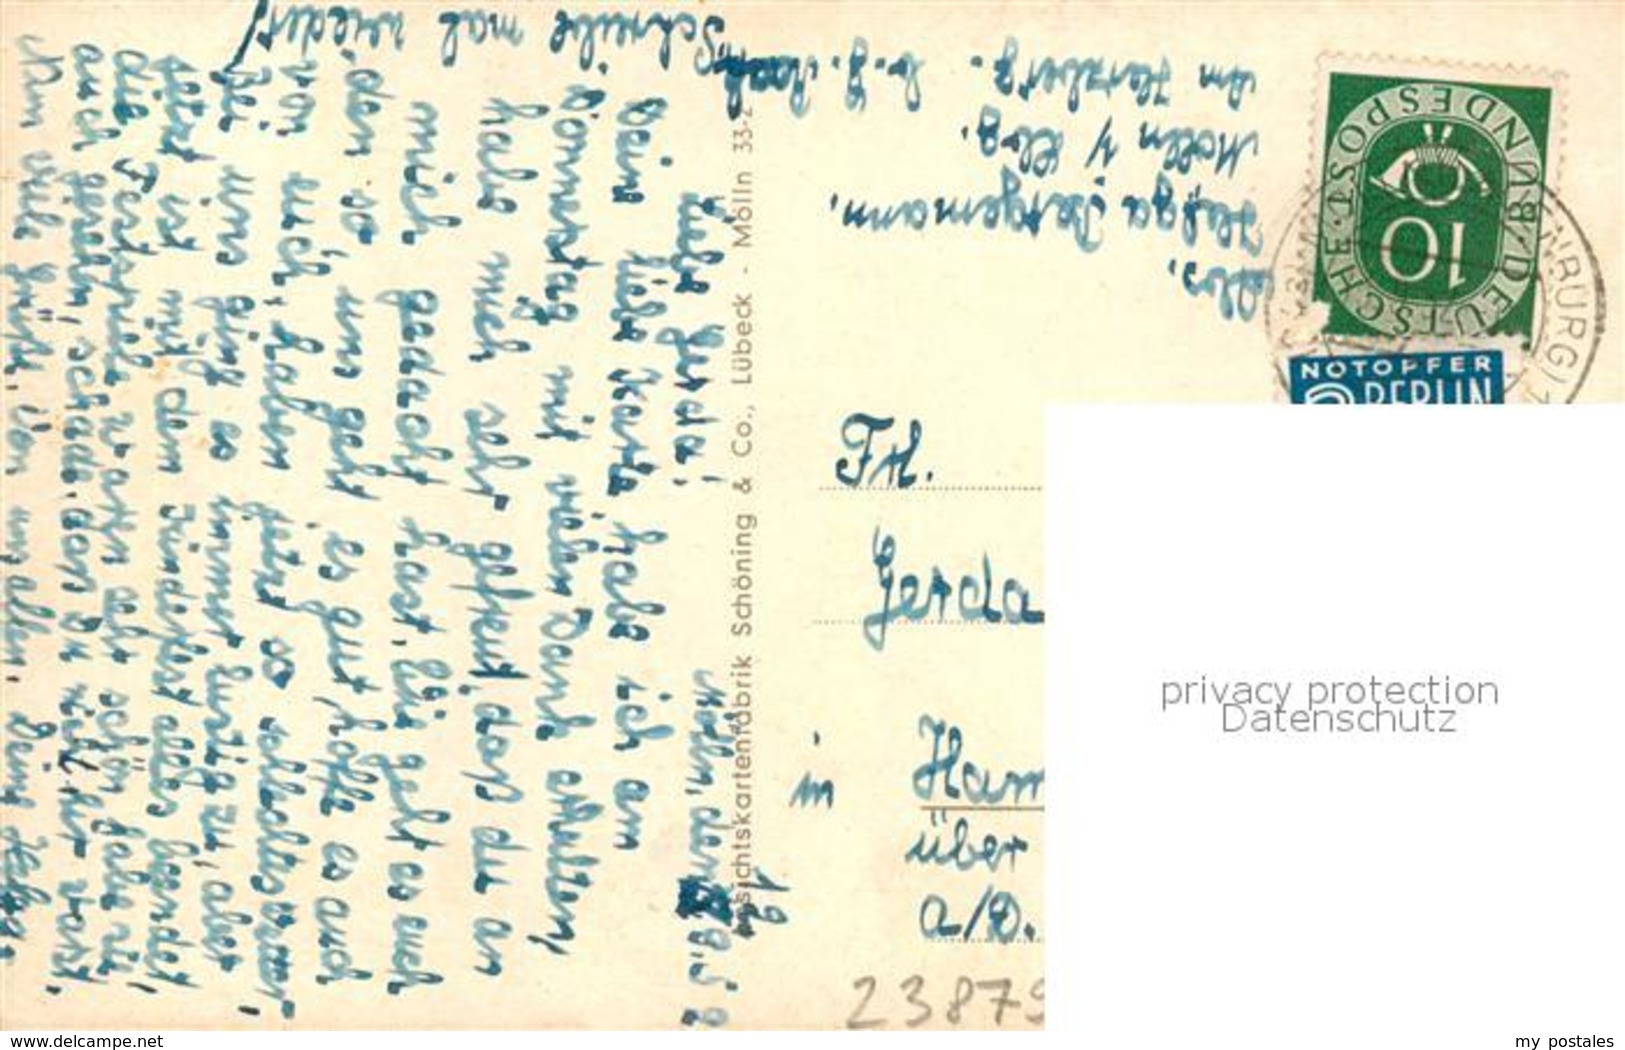 Mölln, den 9.52
Liebe Gerda!
Deine liebe Karte habe ich am
Donnerstag mit vielen Dank erhalten,
habe mich sehr gefreut, daß du an
mich gedacht hast. Wie geht es euch
den so, uns geht es gut, hoffe es auch
von euch, haben jetzt so
Bei uns ging es immer lustig zu, aber
jetzt ist mit den Kinderfest alles beendet
die Festspiele waren sehr schön
auch gefallen, schade, das Du nicht hier warst.
Nun viele Grüße, von uns allen, Deine Helga.
Schreibe mal wieder!
Abs.
Helga Bergemann.
Mölln / Lbg.
Am Hasselberg.
Ansichtskartenfabrik Schöning & Co., Lübeck - Mölln 33-2
10
DEUTSCHE BUNDESPOST
NOTOPFER
2 BERLIN
NBURG)
Frl.
Gerda
in Ham
über
a/D.
23879
privacy protection
Datenschutz
www.ehebrecht.net
my postales